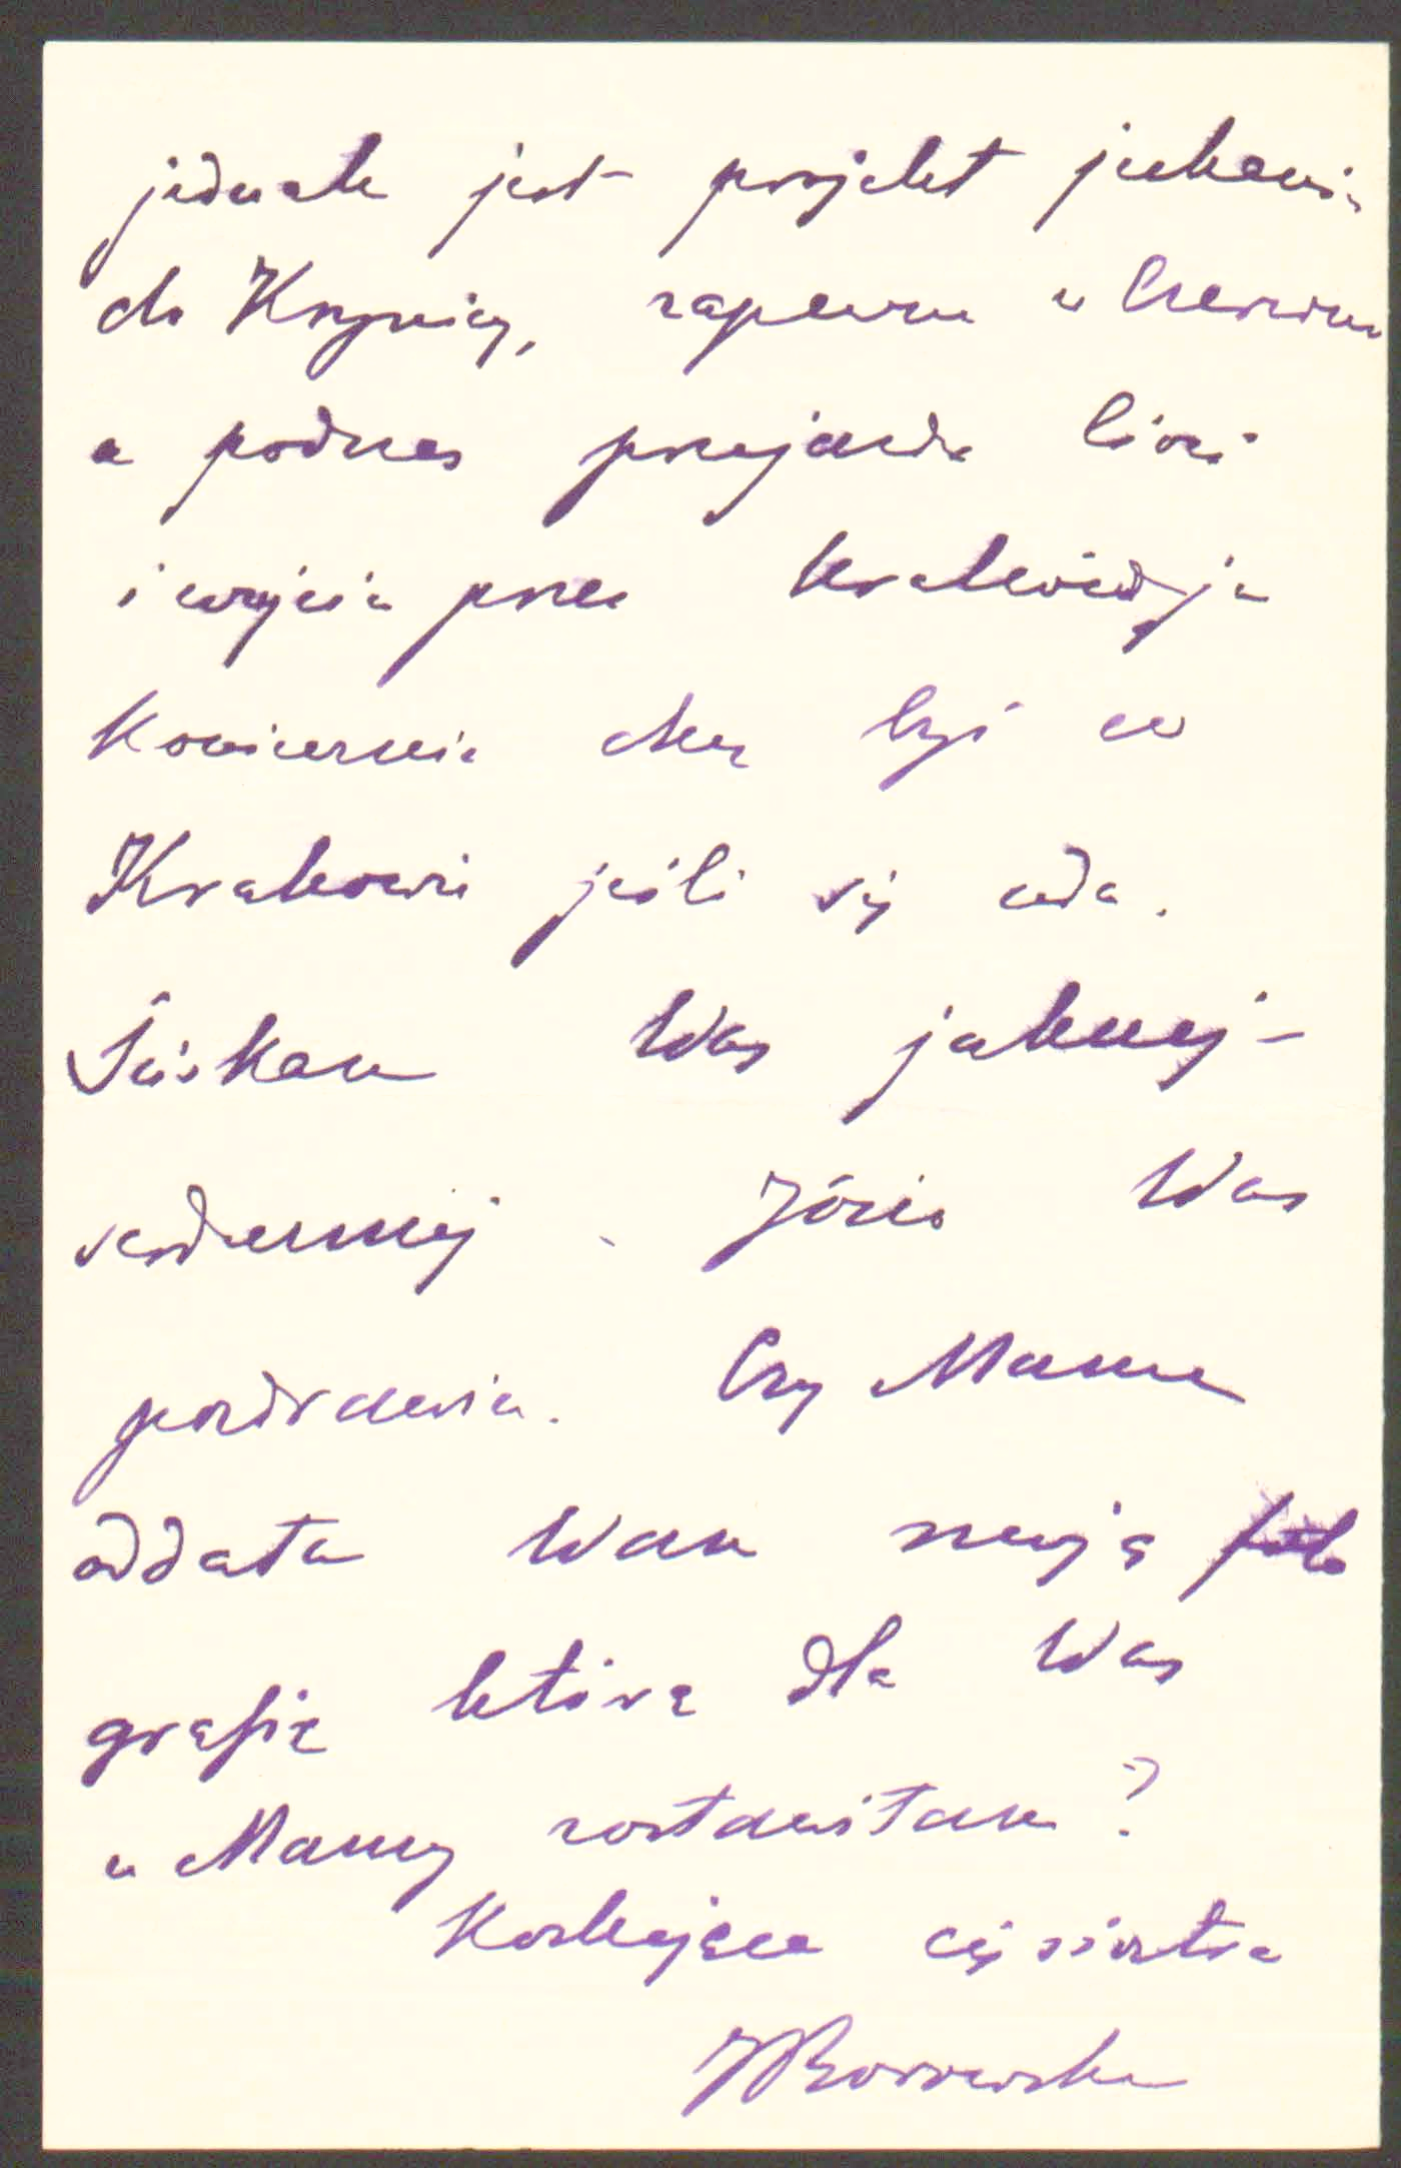 jednak jest projekt jechania
do Krynicy, zapewne w Czerwcu
a podczas przejazdu Cioci
i wujcia przez Kraków ja
koniecznie chcę być w
Krakowie jeśli się uda.
Ściskam Was jaknaj-
serdeczniej. Józio Was
pozdrawia. Czy Mama
oddała Wam moją foto
grafię którą dla Was
u Mamy zostawiłam?
Kochająca cię siostra
JBorowska